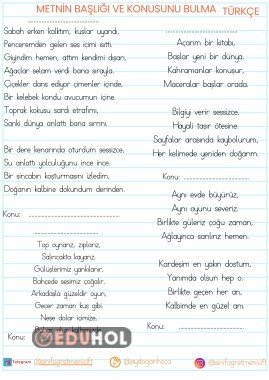 METNİN BAŞLIĞI VE KONUSUNU BULMA TÜRKÇE
Sabah erken kalktım, kuşlar uyandı,
Penceremden gelen ses içimi ısıttı.
Giyindim hemen, attım kendimi dışarı,
Ağaçlar selam verdi bana sırayla.
Çiçekler dans ediyor çimenler içinde,
Bir kelebek kondu avucumun içine.
Toprak kokusu sardı etrafımı,
Sanki dünya anlattı bana sırrını.
Bir dere kenarında oturdum sessizce,
Su anlattı yolculuğunu ince ince.
Bir sincabın koşturmasını izledim,
Doğanın kalbine dokundum derinden.
Konu:
Top oynarız, zıplarız,
Salıncakta kayarız.
Gülüşlerimiz yankılanır,
Bahçede sesimiz çoğalır.
Arkadaşla güzeldir oyun,
Geçer zaman kuş gibi.
Neşe dolar içimize,
Konu:
Açarım bir kitabı,
Başlar yeni bir dünya.
Kahramanlar konuşur,
Maceralar başlar orada.
Bilgiyi verir sessizce,
Hayali taşır ötesine.
Sayfalar arasında kaybolurum,
Her kelimede yeniden doğarım.
Konu:
Aynı evde büyürüz,
Aynı oyunu severiz.
Birlikte güleriz çoğu zaman,
Ağlayınca sarılırız hemen.
Kardeşim en yakın dostum,
Yanımda olsun hep o.
Birlikte geçen her an,
Kalbimde en güzel anı.
Konu:
EDUHOL
Telegram
@sinifogretmenioff
@aydoganhoca
@sinifogretmenioff